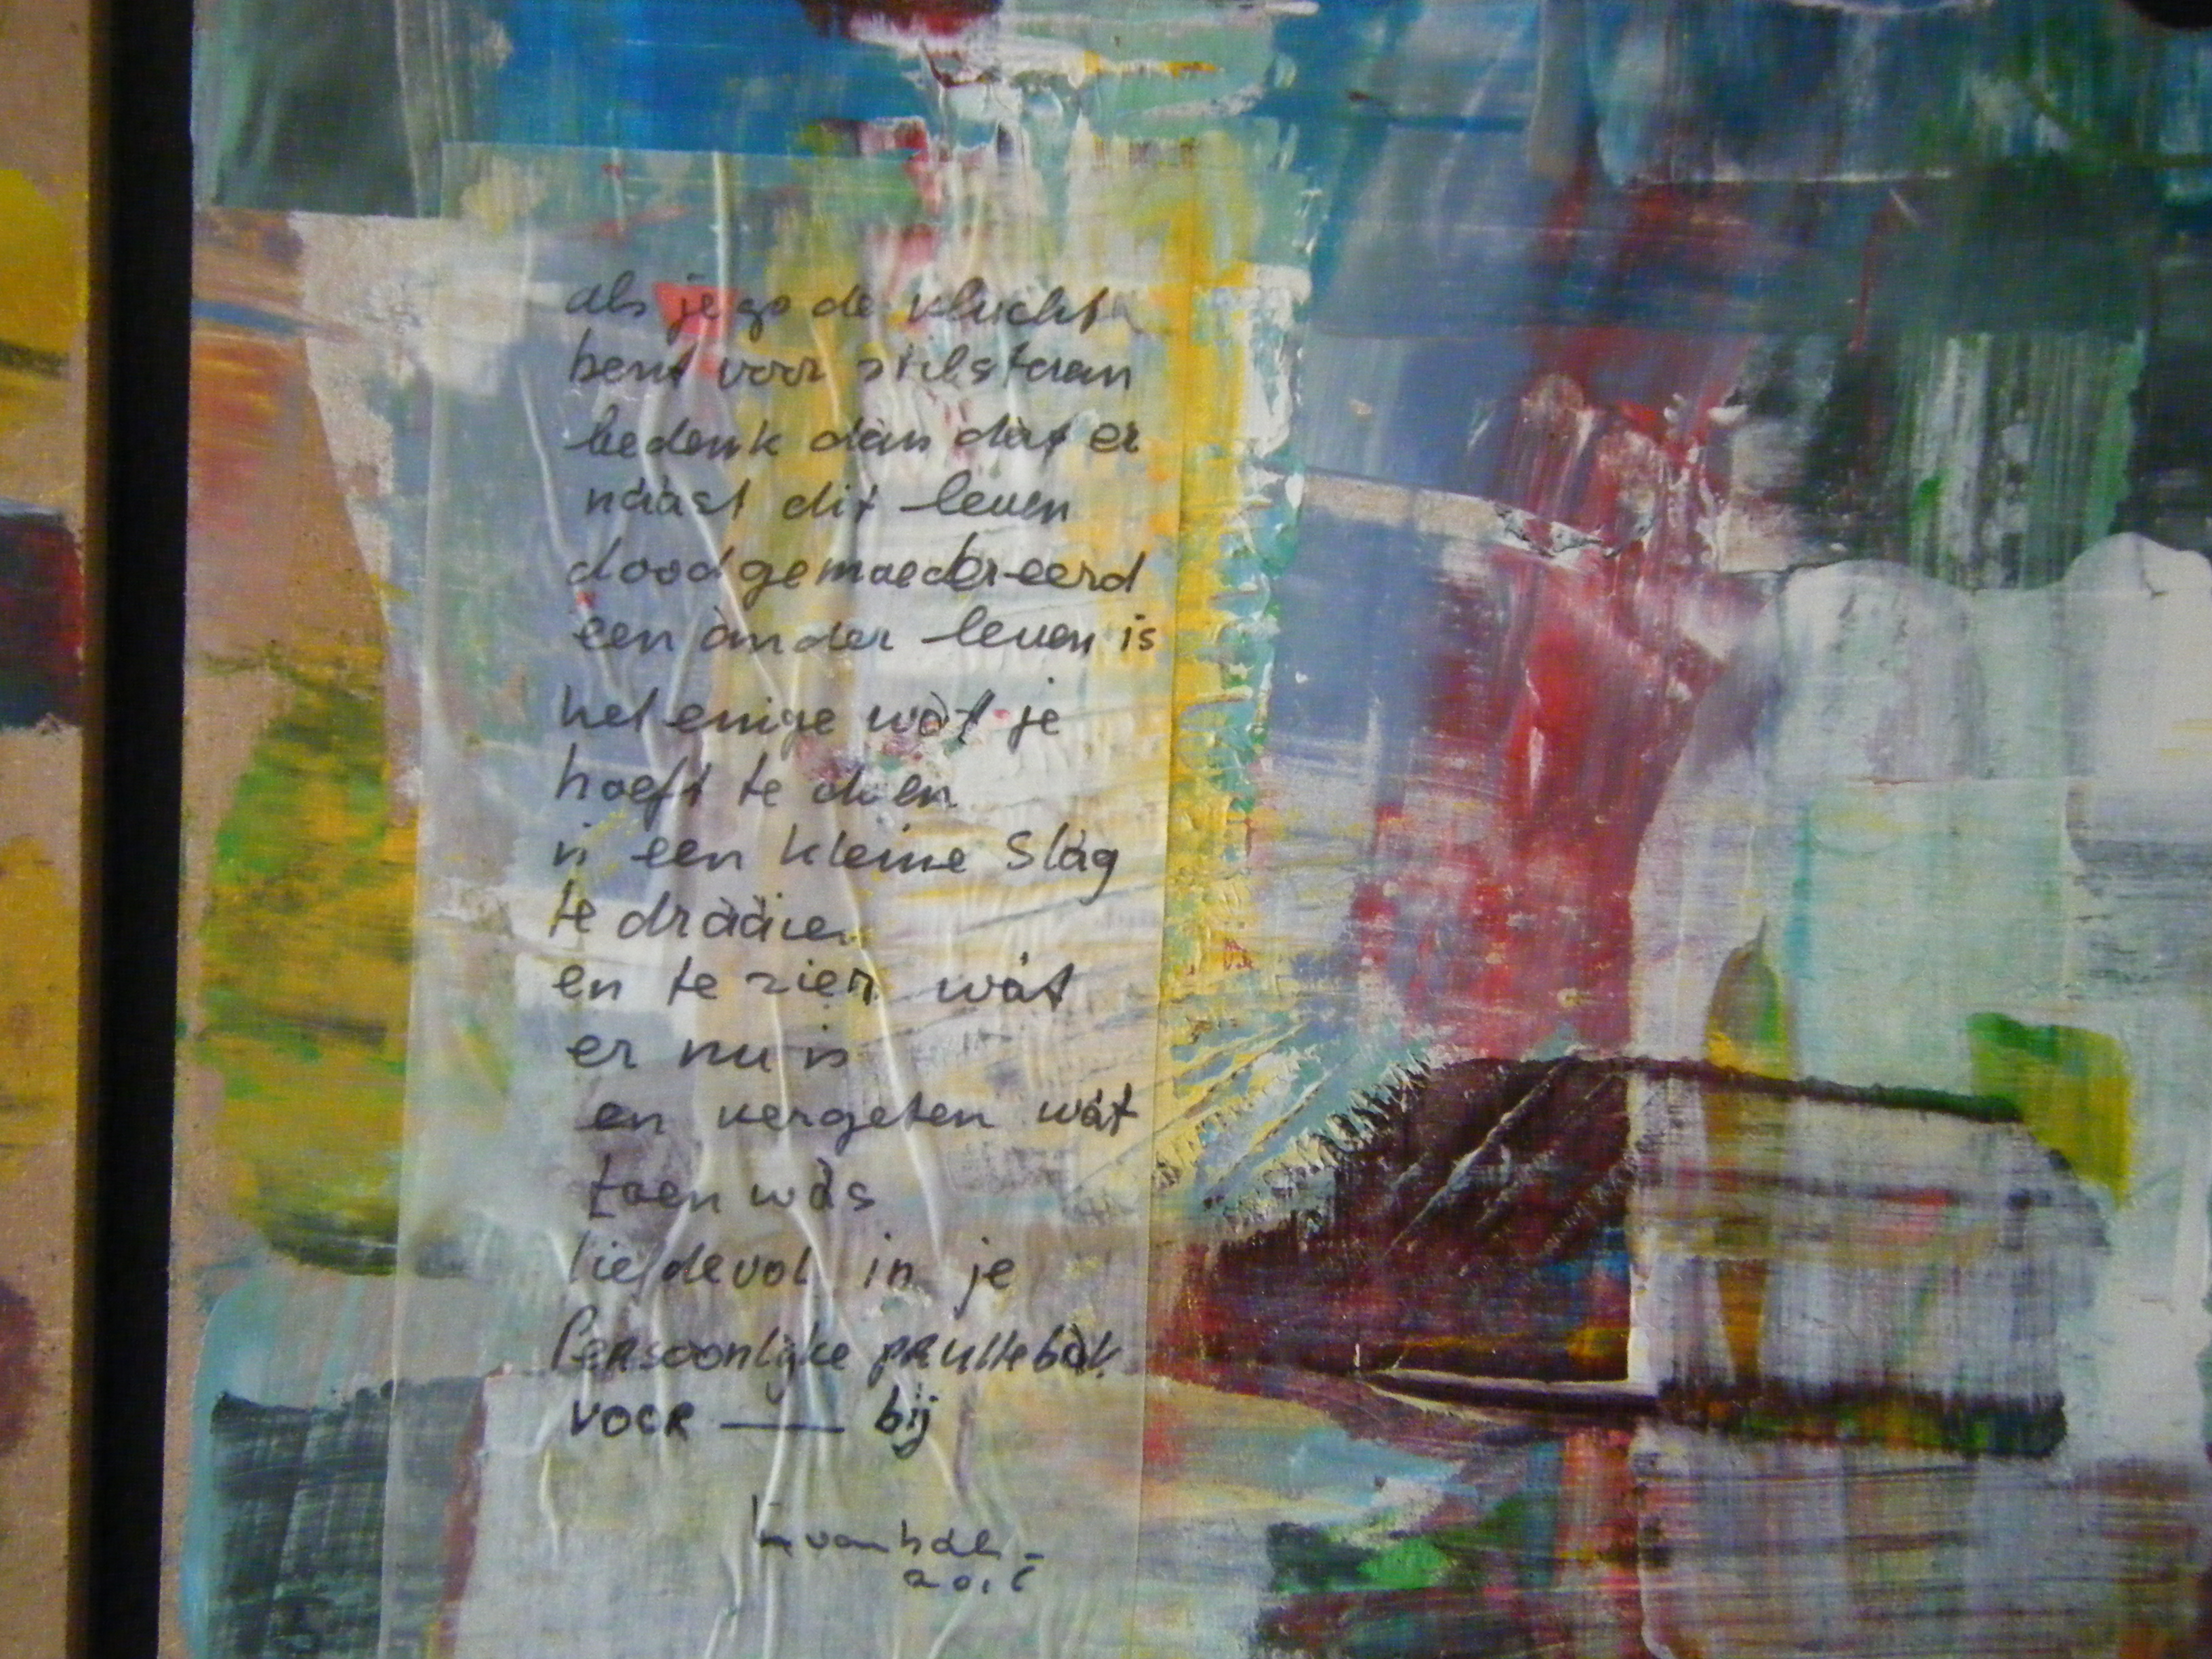 als je op de vlucht
bent voor stilstaan
bedenk dan dat er
naast dit leven
doodgemoedereerd
een ander leven is
het enige wat je
hoeft te doen
is een kleine slag
te draaien
en te zien wat
er nu is
en vergeten wat
toen was
liefdevol in je
Persoonlijke prullebak
VOOR — bij